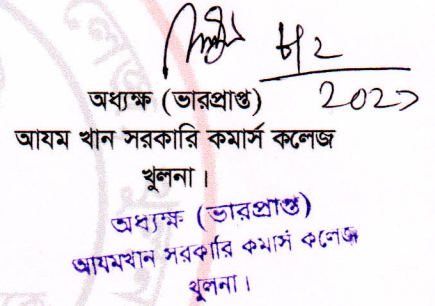 ৮/২
২০২১
অধ্যক্ষ (ভারপ্রাপ্ত)
আযম খান সরকারি কমার্স কলেজ
খুলনা।
অধ্যক্ষ (ভারপ্রাপ্ত)
আযমখান সরকারি কমার্স কলেজ
খুলনা।